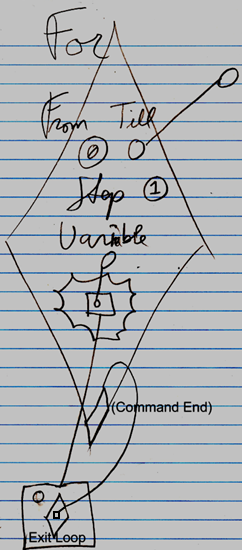 For
From Till
0
Step 1
Variable
(Command End)
Exit Loop